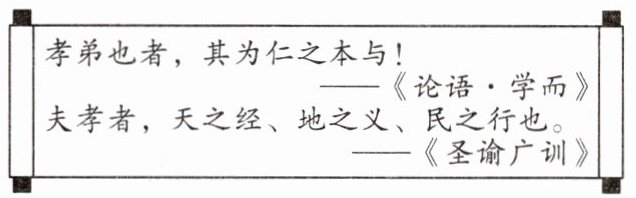 孝弟也者，其为仁之本与！
——《论语·学而》
夫孝者，天之经、地之义、民之行也。
——《圣谕广训》